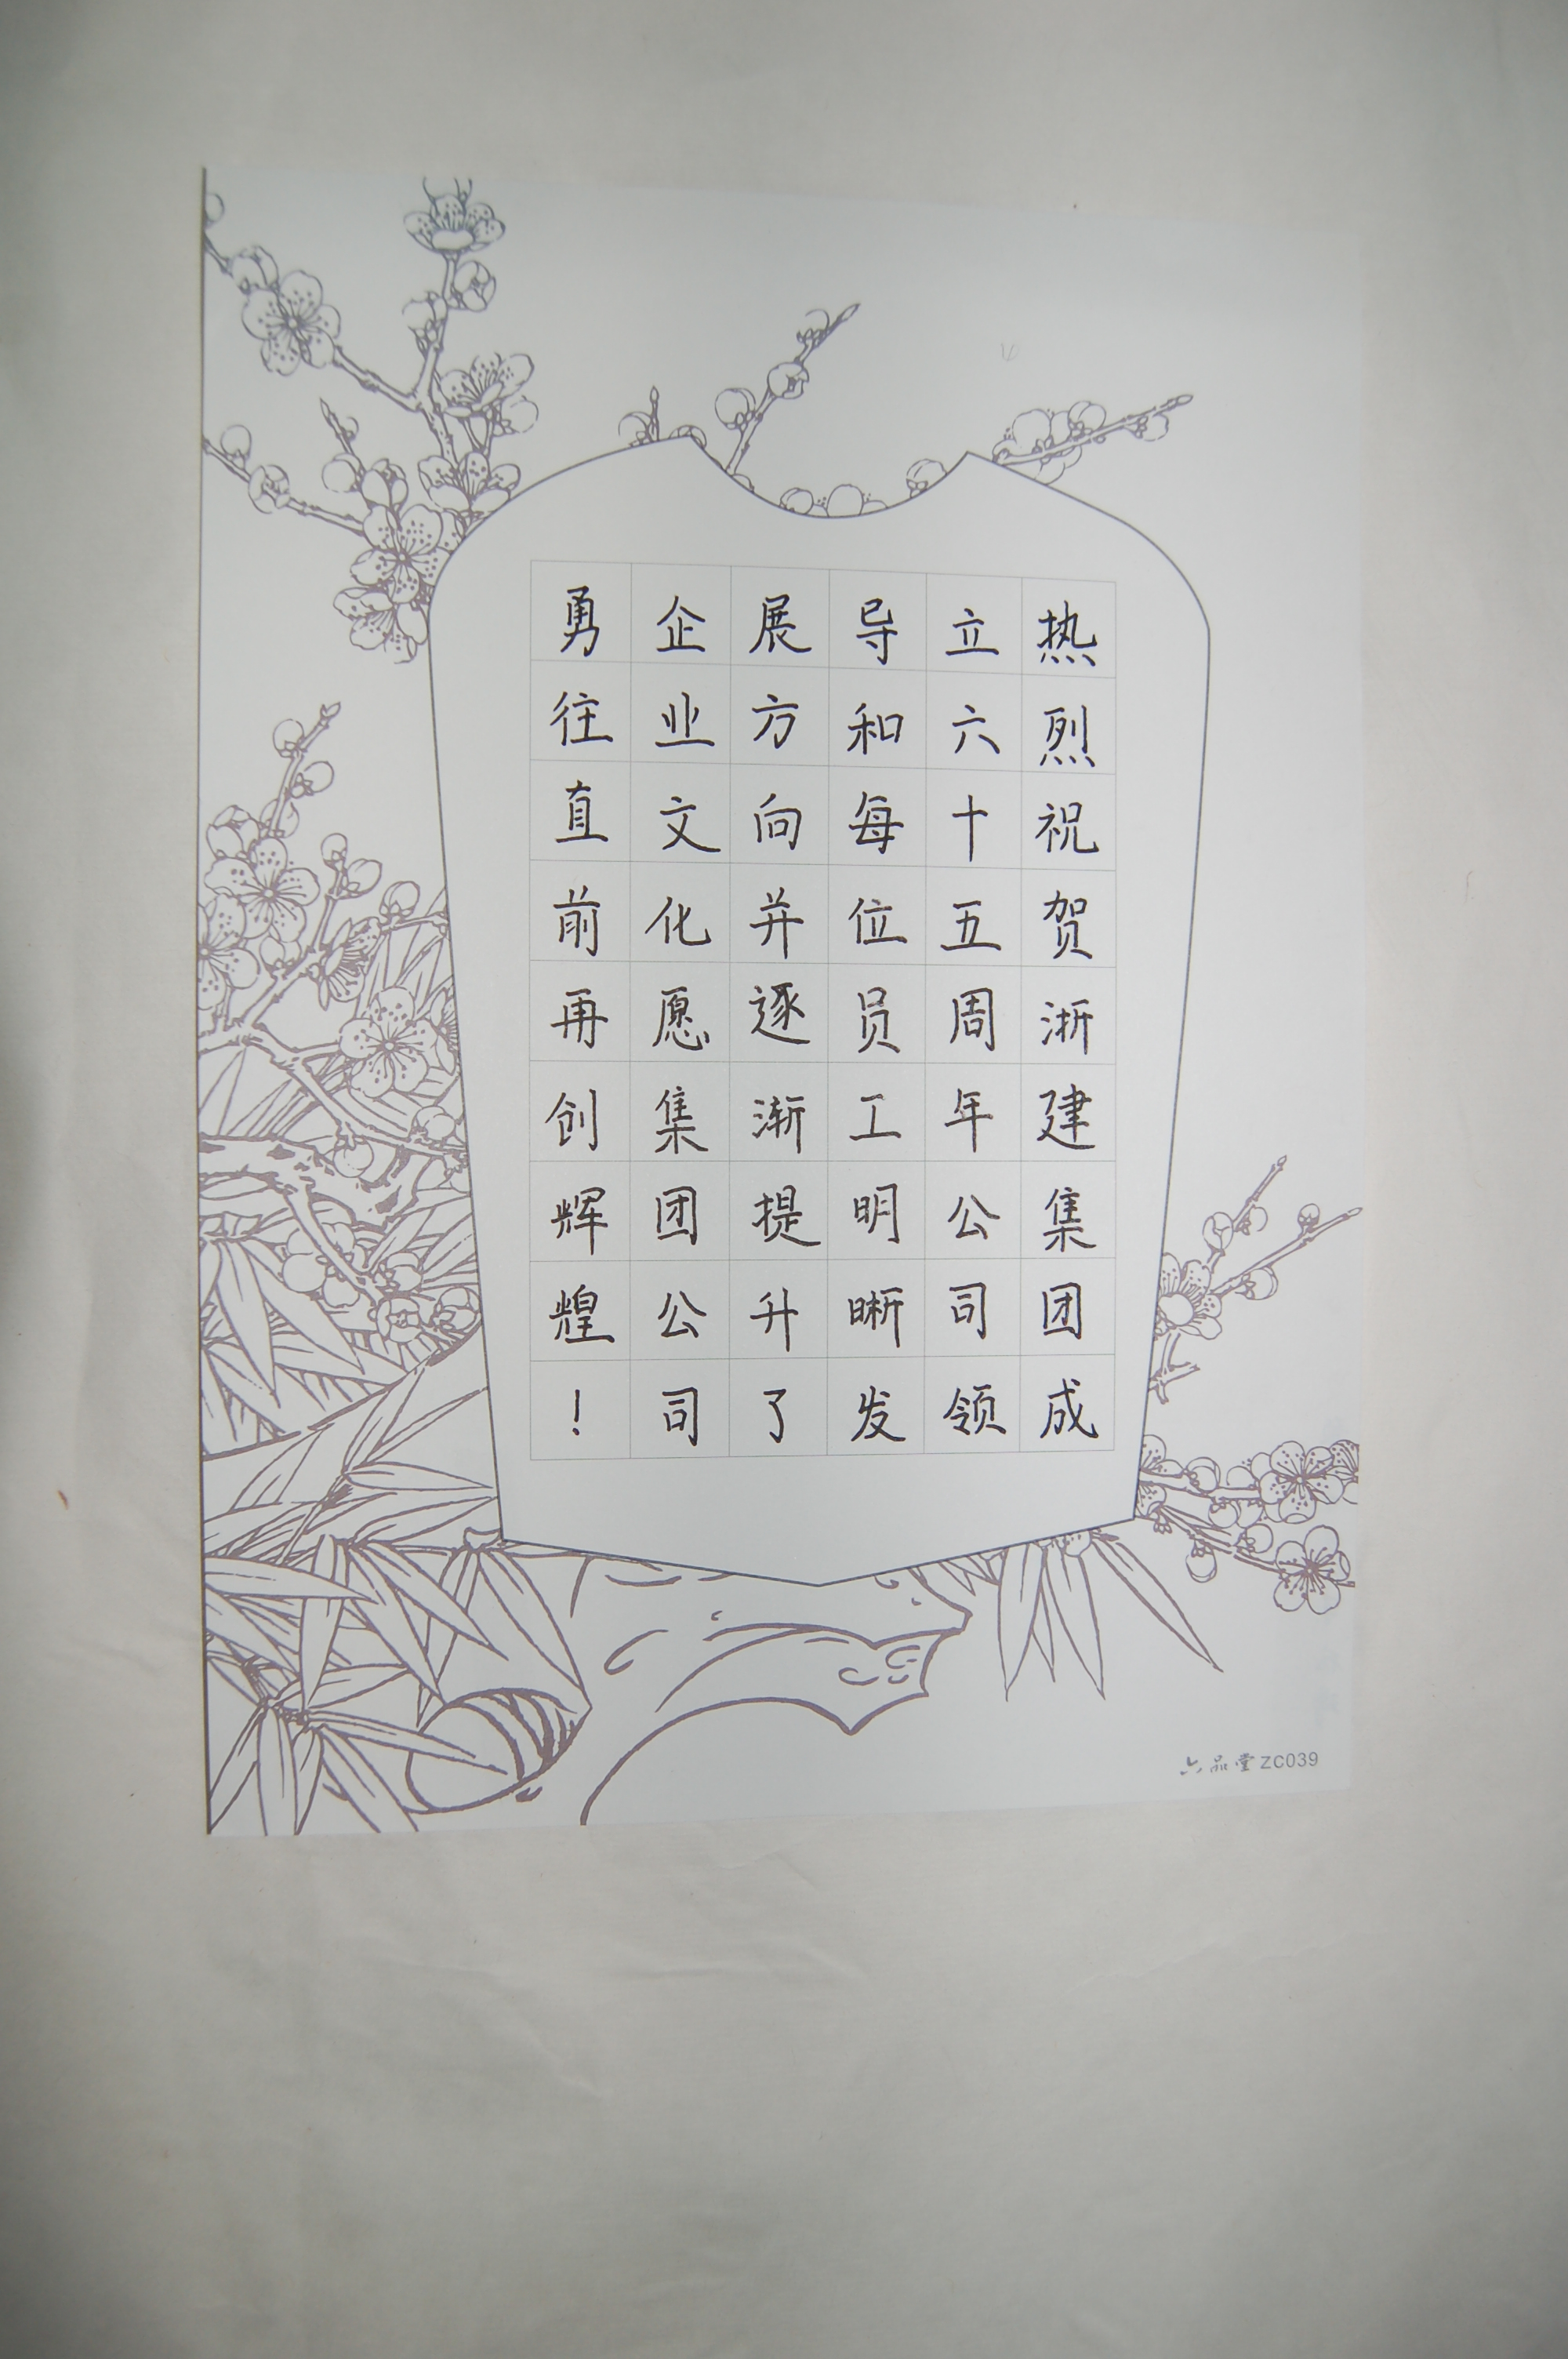 热烈祝贺浙建集团成
立六十五周年公司领
导和每位员工明晰发
展方向并逐渐提升了
企业文化愿集团公司
勇往直前再创辉煌！
六品堂 ZC039